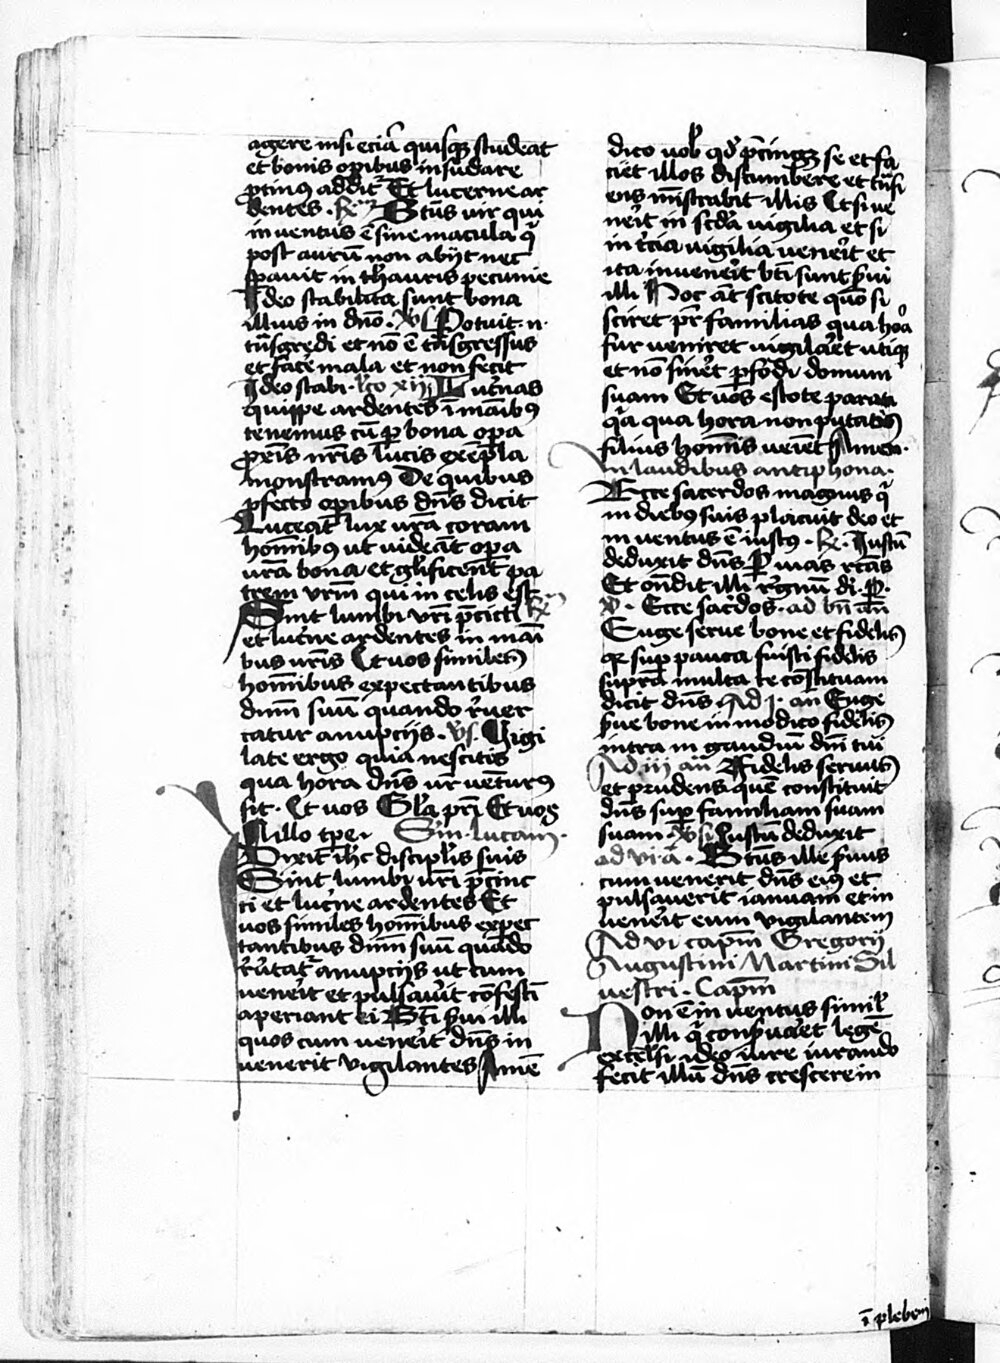 agere nisi eciā quisq3 studeat
et bonis opibus insudare
ꝓtinꝰ addit᷑ Et lucerne ar
dentes · Rm Btūs vir qui
inventus ē sine macula q̄
post aurū non abijt nec
spauit in thauris pecunie
Ideo stabilita sunt bona
illius in dno · Vs Potuit · n ·
tn̄sgredi et nō ē tn̄sgressus
et face᷑ mala et non fecit
Ideo stabi · lco xij Lucnas
quippe ardentes ī māibꝰ
tenemus cū ꝑ bona opa
ꝓxis nr̄is lucis exēpla
monstramꝰ De quibus
ꝓfecto opibus dn̄s dicit
Luceat lux vr̄a coram
homībꝰ ut videāt opa
vr̄a bona et glificent pa
trem vrm̄ qui in celis est
Sint lumbi vr̄i p̄cīcti Rm
et lucne ardentes in mani
bus vr̄is Et vos similes
homībus expectantibus
dnm̄ suū quando rever
tatur a nupcijs · Vs · Vigi
late ergo quia nescitis
qua hora dn̄s vr̄ venturꝰ
sit · Et vos Gla pr̄i Et vos
In illo tꝑe · Scm · lucam ·
Dixit ihc discipl̄is suis
Sint lumbi vr̄i p̄cinc
ti et lucne ardentes Et
vos similes homībus expec
tantibus dnm̄ suū quādo
revtat᷑ a nupcijs ut cum
venerit et pulsavit cōfestī
aperiant ei Bti svi illi
quos cum venerit dn̄s in
venerit vigilantes Amē
dico vob̄ qd̄ p̄cinget se et fa
ciet illos discumbere et tn̄si
ens mīstrabit illis Et si ve
nerit in scda vigilia et si
in tcia vigilia venerit et
ita invenerit bti sunt svi
illi Hoc at scitote quō si
sciret pr̄ familias qua hora
fur veniret vigilaret utiq3
et nō sineret ꝑfodi domum
suam Et vos estote parati
qa qua hora non putatis
filius homīs veniet Amen ·
In laudibus antiphona ·
Ecce sacerdos magnus q̄
in diebꝰ suis placuit deo et
inventus ē iustꝰ · R · Iustū
deduxit dn̄s P vias rcās
Et on̄dit illi regnū di · P ·
V · Ecce sacdos · ad bn̄ an̄
Euge serve bone et fidelis
qr sup pauca fuisti fidelis
supra multa te cōstituam
dicit dn̄s Ad j · an̄ Euge
sve bone in modico fidelis
intra in gaudiū dnī tui
Ad iij an̄ Fidelis servus
et prudens quē constituit
dn̄s sup familiam suam
suam · Vsi Iustū deduxit
ad vi · a · Btūs ille svus
cum venerit dn̄s eiꝰ et
pulsaverit ianuam et in
venerit eum vigilantem
Ad vi capm̄ Gregorij
Augustini Martini Sil
vestri · Capm̄
Non ē inventus simil̄
illi q̄ conservaret legē
excelsi ideo iure iurando
fecit illū dn̄s crescere in
ī plebem